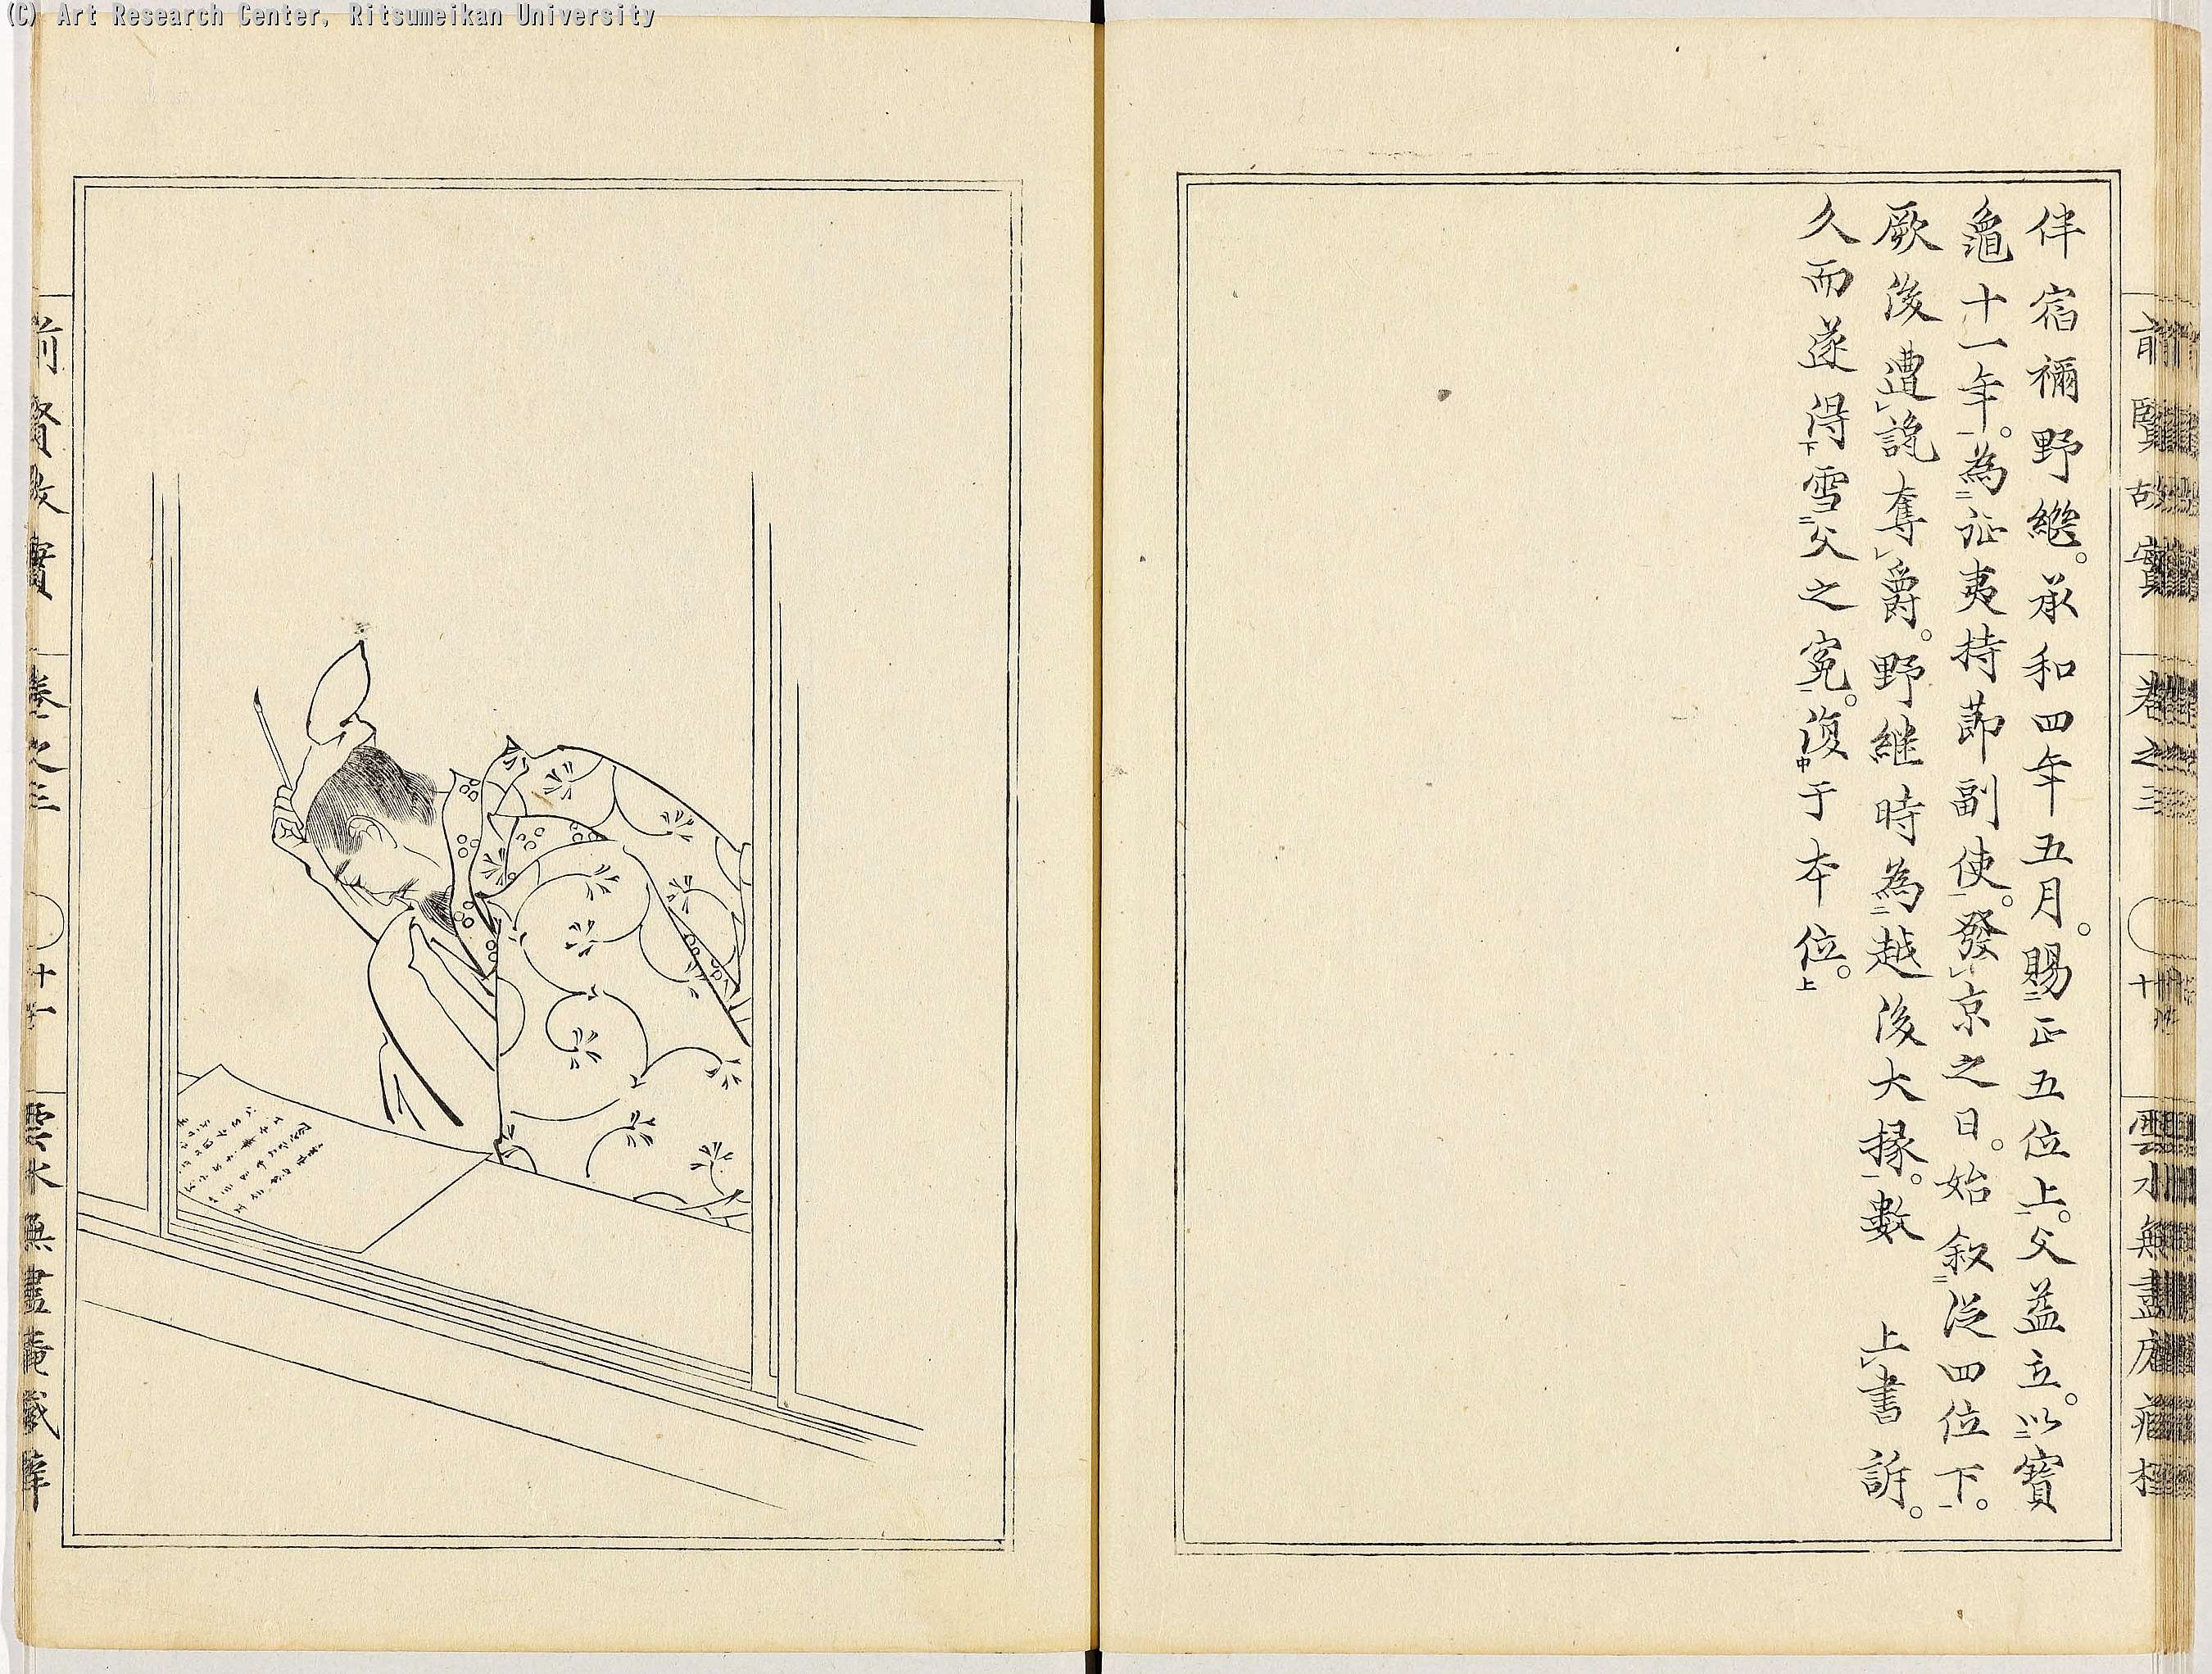 (C) Art Research Center, Ritsumeikan University
前賢故實
卷之三
伴宿禰野繼。承和四年五月。賜二正五位上一。父益立。以二寶
龜十一年一。為二征夷持節副使一。發レ京之日。始叙二從四位下一。
厥後遭レ讒奪レ爵。野継時為二越後大掾一。數 上レ書訴。
久而遂得下雪二父之冤一。復中于本位上。
前賢故實
卷之三
雲水無盡庵藏